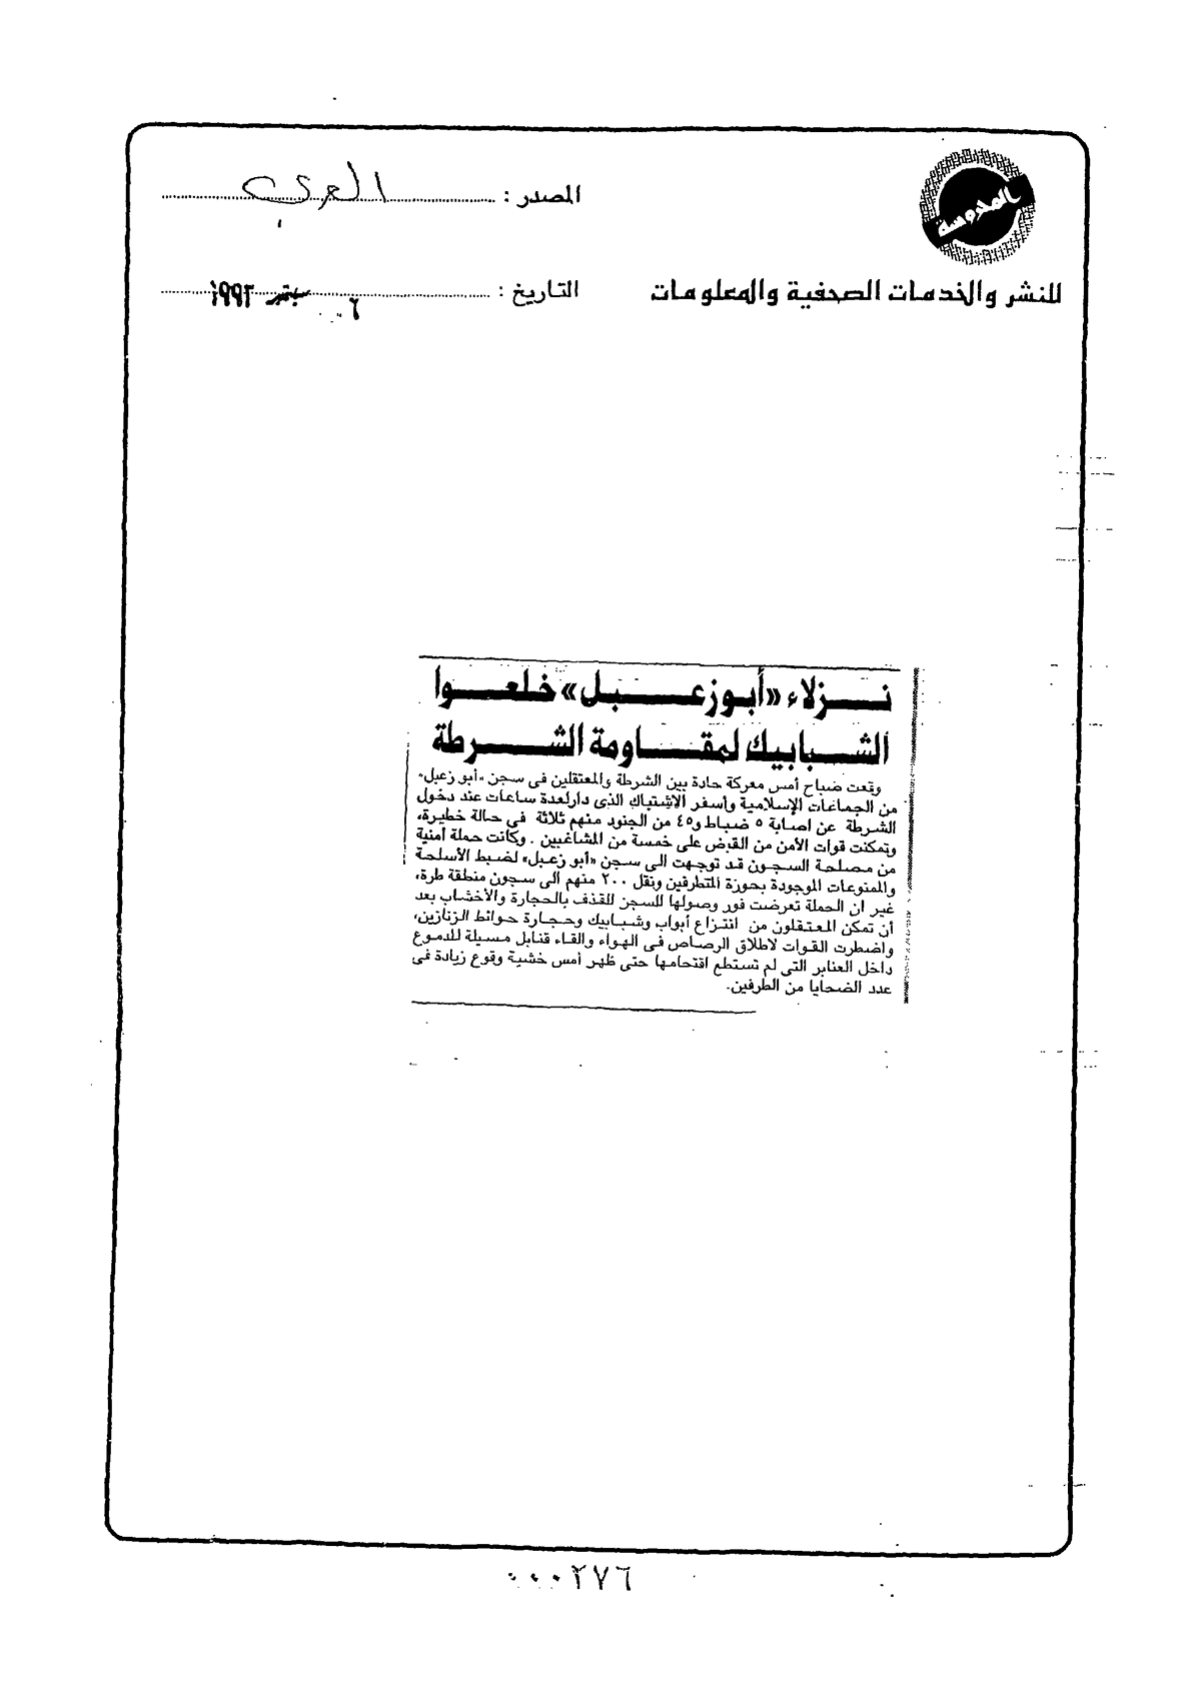 المحروسة
للنشر والخدمات الصحفية والمعلومات
المصدر : العربى
التاريخ : ٦ سبتمبر ١٩٩٣
نزلاء «أبوزعبل» خلعوا
الشبابيك لمقاومة الشرطة
وقعت ضباح أمس معركة حادة بين الشرطة والمعتقلين فى سجن «أبو زعبل»
من الجماعات الإسلامية وأسفر الاشتباك الذى دارلعدة ساعات عند دخول
الشرطة عن اصابة ٥ ضباط و٤٥ من الجنود منهم ثلاثة فى حالة خطيرة،
وتمكنت قوات الأمن من القبض على خمسة من المشاغبين . وكانت حملة أمنية
من مصلحة السجون قد توجهت الى سجن «أبو زعبل» لضبط الأسلحة
والممنوعات الموجودة بحوزة المتطرفين ونقل ٢٠٠ منهم الى سجون منطقة طرة،
غير ان الحملة تعرضت فور وصولها للسجن للقذف بالحجارة والأخشاب بعد
أن تمكن المعتقلون من انتزاع أبواب وشبابيك وحجارة حوائط الزنازين،
واضطرت القوات لاطلاق الرصاص فى الهواء والقاء قنابل مسيلة للدموع
داخل العنابر التى لم تستطع اقتحامها حتى ظهر أمس خشية وقوع زيادة فى
عدد الضحايا من الطرفين.
٠٠٠٢٧٦